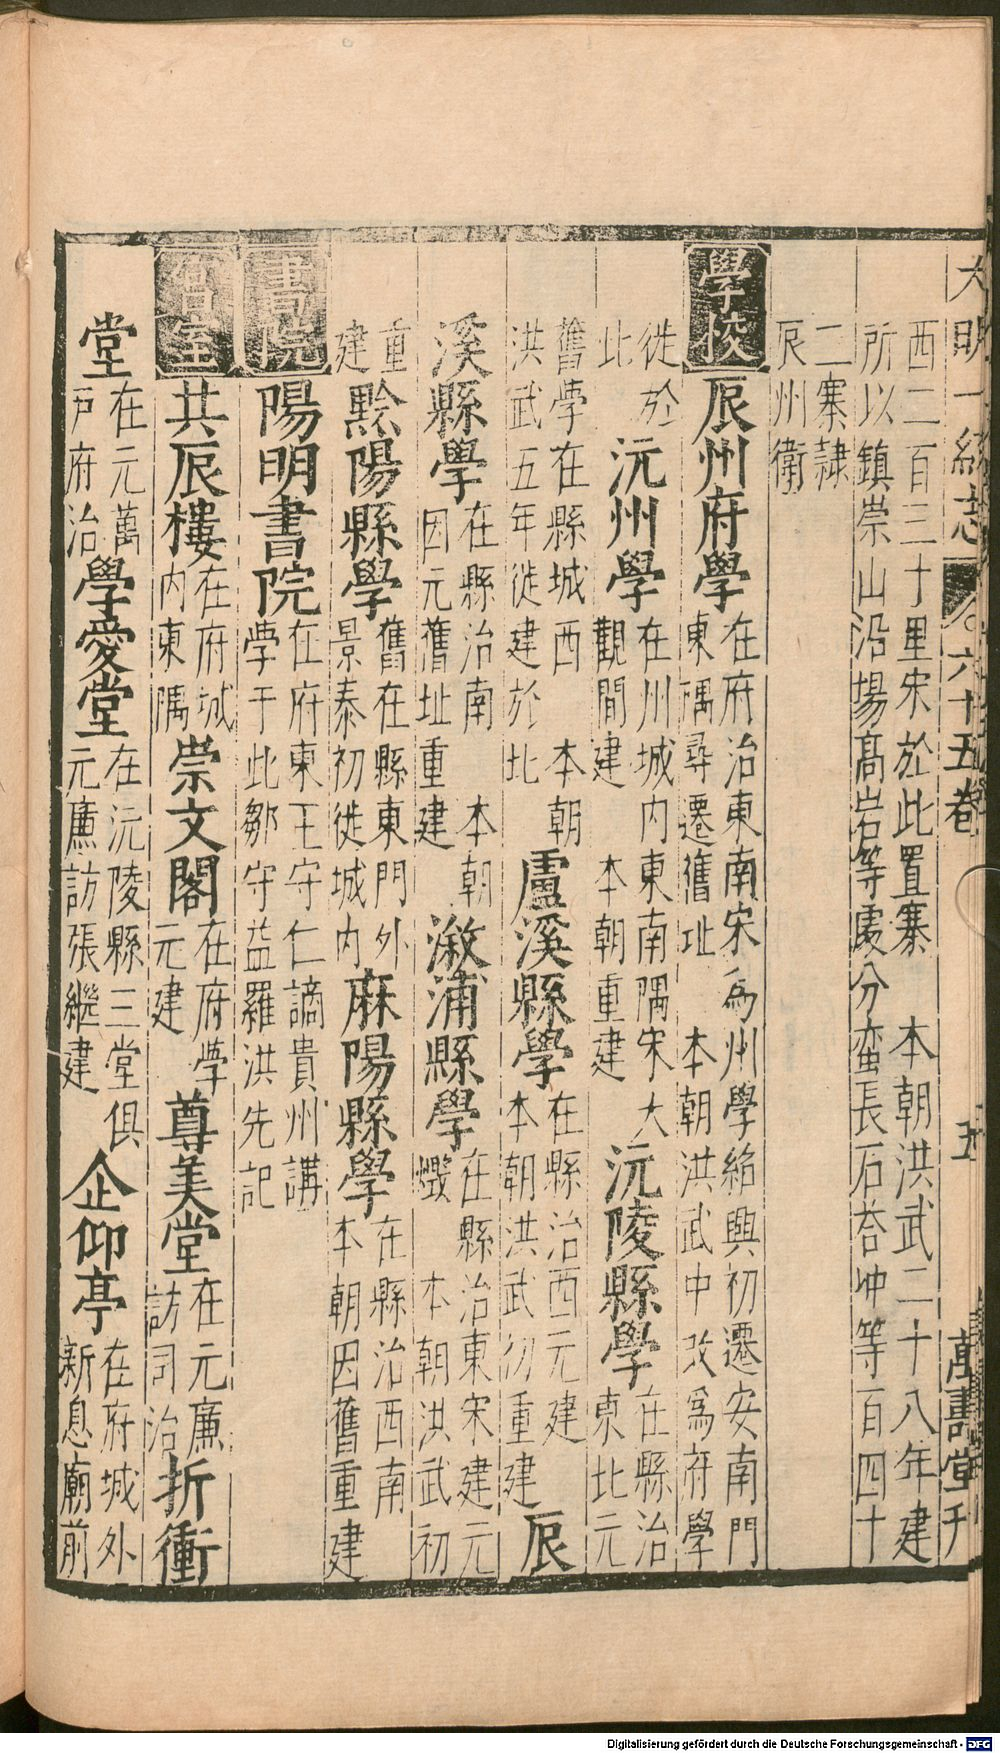 大明一統志 卷六十五卷 五 萬壽堂刊
西二百三十里宋於此置寨 本朝洪武二十八年建
所以鎮崇山沿場高岩等處分蛮長石荅冲等百四十
二寨隷
辰州衛
學校 辰州府學 在府治東南宋為州學紹興初遷安南門
東隅尋遷舊址 本朝洪武中改為府學
徙於
北 沅州學 在州城内東南隅宋大
觀間建 本朝重建 沅陵縣學 在縣治
東北元
舊學在縣城西 本朝
洪武五年徙建於北 盧溪縣學 在縣治西元建
本朝洪武初重建 辰
溪縣學 在縣治南 本朝
因元舊址重建 漵浦縣學 在縣治東宋建元
燬 本朝洪武初
重
建 黔陽縣學 舊在縣東門外
景泰初徙城内 麻陽縣學 在縣治西南
本朝因舊重建
書院 陽明書院 在府東王守仁謫貴州講
學于此鄒守益羅洪先記
宮室 共辰樓 在府城
内東隅 崇文閣 在府學
元建 尊美堂 在元廉
訪司治 折衝
堂 在元萬
戸府治 學愛堂 在沅陵縣三堂俱
元廉訪張繼建 企仰亭 在府城外
新息廟前
Digitalisierung gefördert durch die Deutsche Forschungsgemeinschaft - DFG